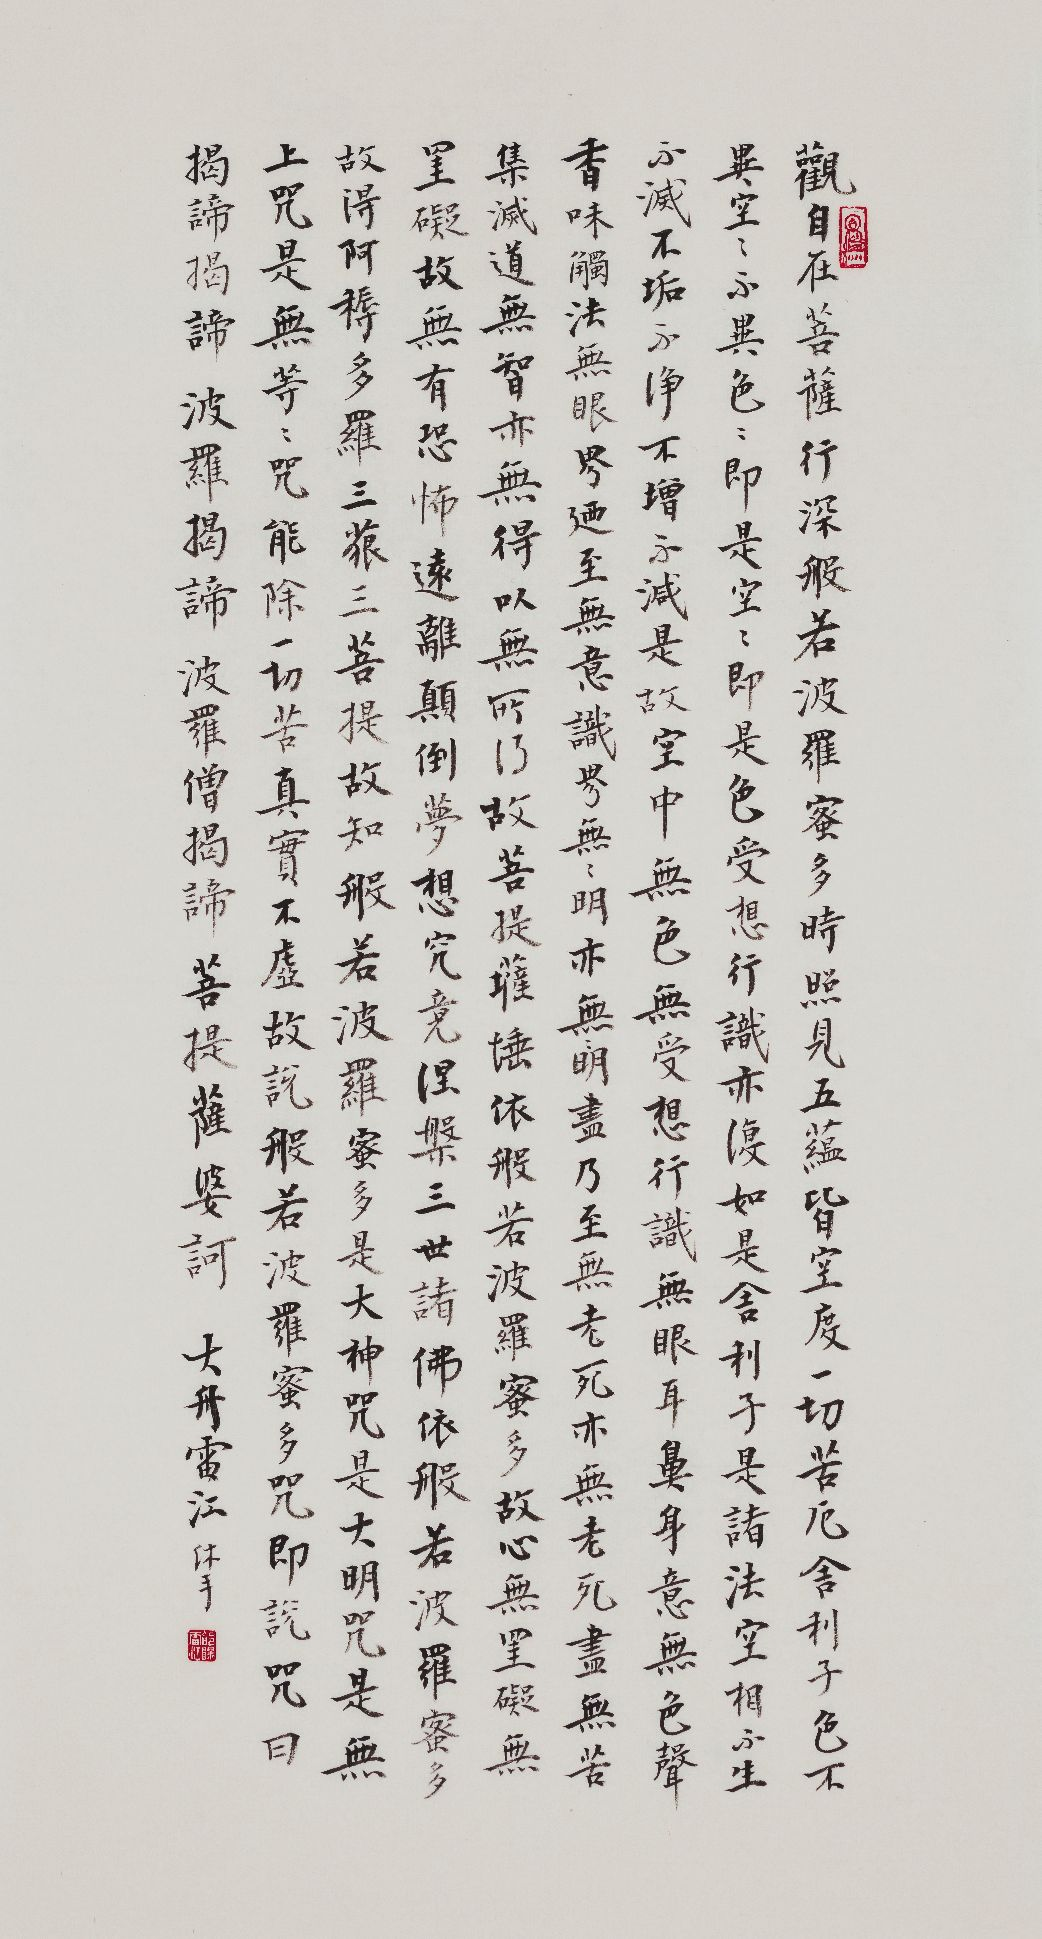 觀自在菩薩行深般若波羅蜜多時照見五蘊皆空度一切苦厄舍利子色不
異空〻不異色〻即是空〻即是色受想行識亦復如是舍利子是諸法空相不生
不滅不垢不淨不增不減是故空中無色無受想行識無眼耳鼻身意無色聲
香味觸法無眼界廼至無意識界無〻明亦無〻明盡乃至無老死亦無老死盡無苦
集滅道無智亦無得以無所得故菩提薩埵依般若波羅蜜多故心無罣礙無
罣礙故無有恐怖遠離顛倒夢想究竟涅槃三世諸佛依般若波羅蜜多
故得阿耨多羅三藐三菩提故知般若波羅蜜多是大神咒是大明咒是無
上咒是無等〻咒能除一切苦真實不虛故說般若波羅蜜多咒即說咒曰
揭諦揭諦 波羅揭諦 波羅僧揭諦 菩提薩婆訶 大舟雷江沐手